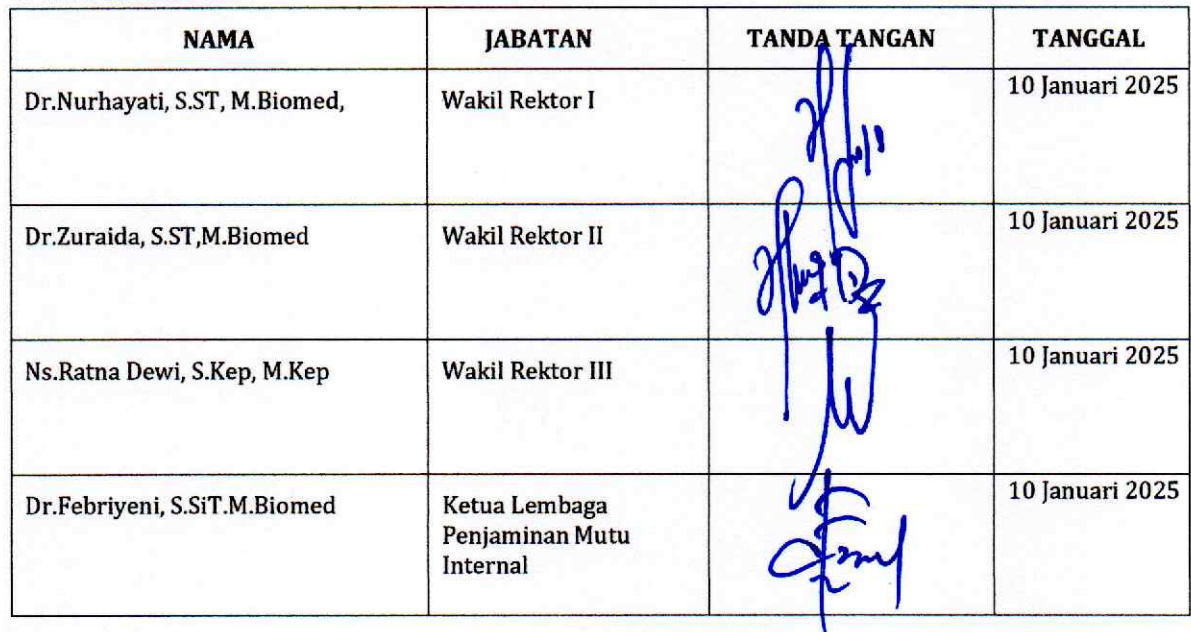 NAMA JABATAN TANDA TANGAN TANGGAL
Dr.Nurhayati, S.ST, M.Biomed, Wakil Rektor I 10 Januari 2025
Dr.Zuraida, S.ST,M.Biomed Wakil Rektor II 10 Januari 2025
Ns.Ratna Dewi, S.Kep, M.Kep Wakil Rektor III 10 Januari 2025
Dr.Febriyeni, S.SiT.M.Biomed Ketua Lembaga 10 Januari 2025
Penjaminan Mutu
Internal